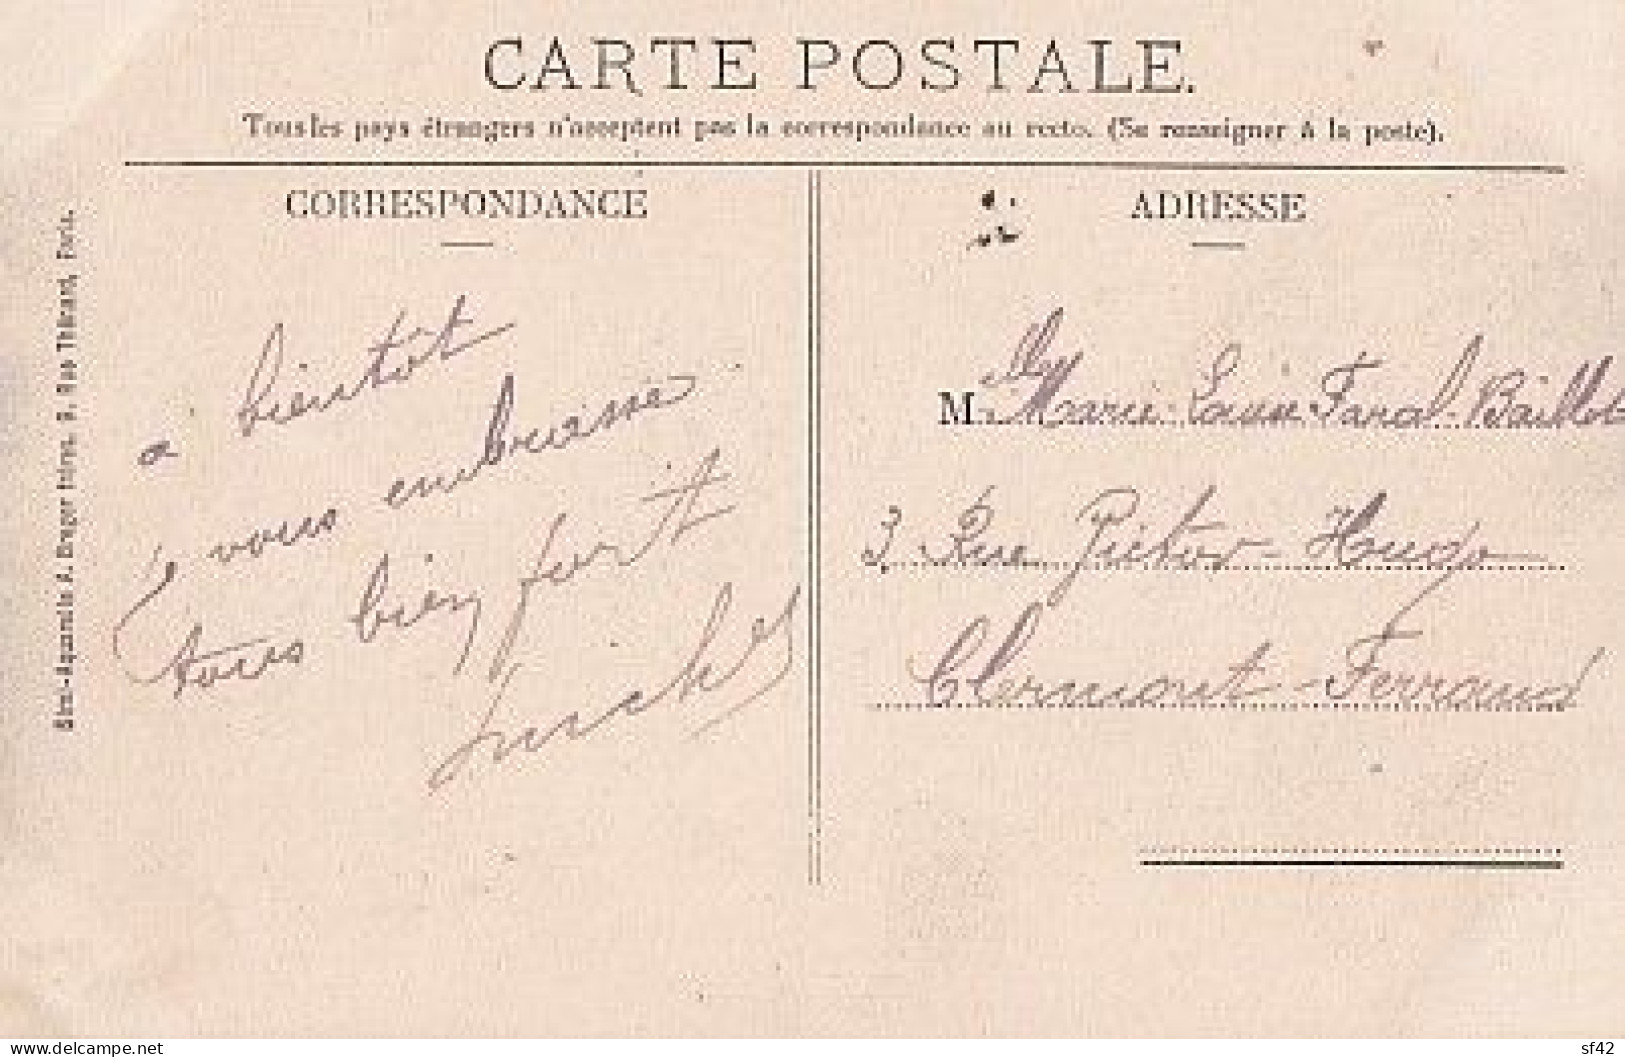 CARTE POSTALE.
Tous les pays étrangers n'acceptent pas la correspondance au recto. (Se renseigner à la poste).
CORRESPONDANCE
a bientôt
vous embrasse
tous bien fort
ADRESSE
M Marie Louise Faral-Baillot
3, Rue Victor-Hugo
Clermont-Ferrand
Sim.-Aquarelle A. Breger frères. 9, Rue Thénard, Paris.
www.delcampe.net
sf42